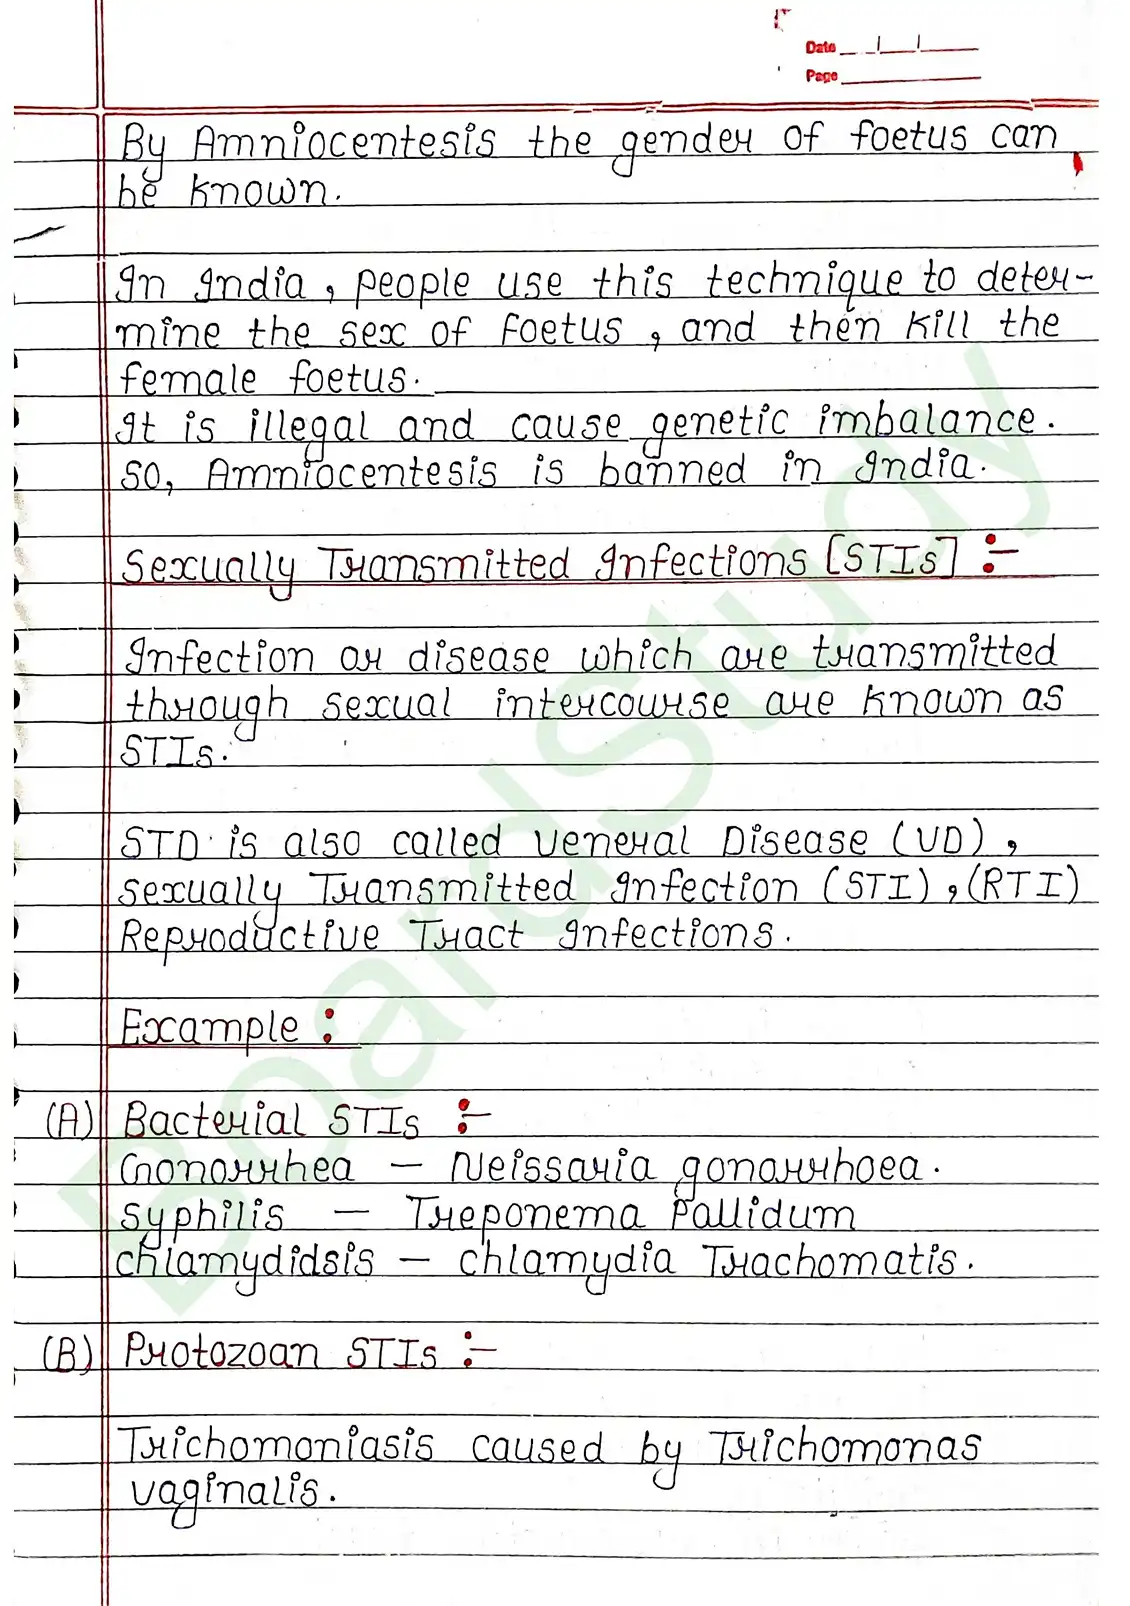 Date
Page
By Amniocentesis the gender of foetus can
be known.
In India, people use this technique to deter-
mine the sex of Foetus, and then kill the
female foetus.
It is illegal and cause genetic imbalance.
So, Amniocentesis is banned in India.
Sexually Transmitted Infections [STIs] :-
Infection or disease which are transmitted
through sexual intercourse are known as
STIs.
STD is also called Veneral Disease (VD),
Sexually Transmitted Infection (STI), (RTI)
Reproductive Tract Infections.
Example :
(A) Bacterial STIs :-
Gonorrhea — Neissaria gonorrhoea.
Syphilis — Treponema Pallidum
Chlamydidsis — chlamydia Trachomatis.
(B) Protozoan STIs :-
Trichomoniasis caused by Trichomonas
vaginalis.
BoardStudy